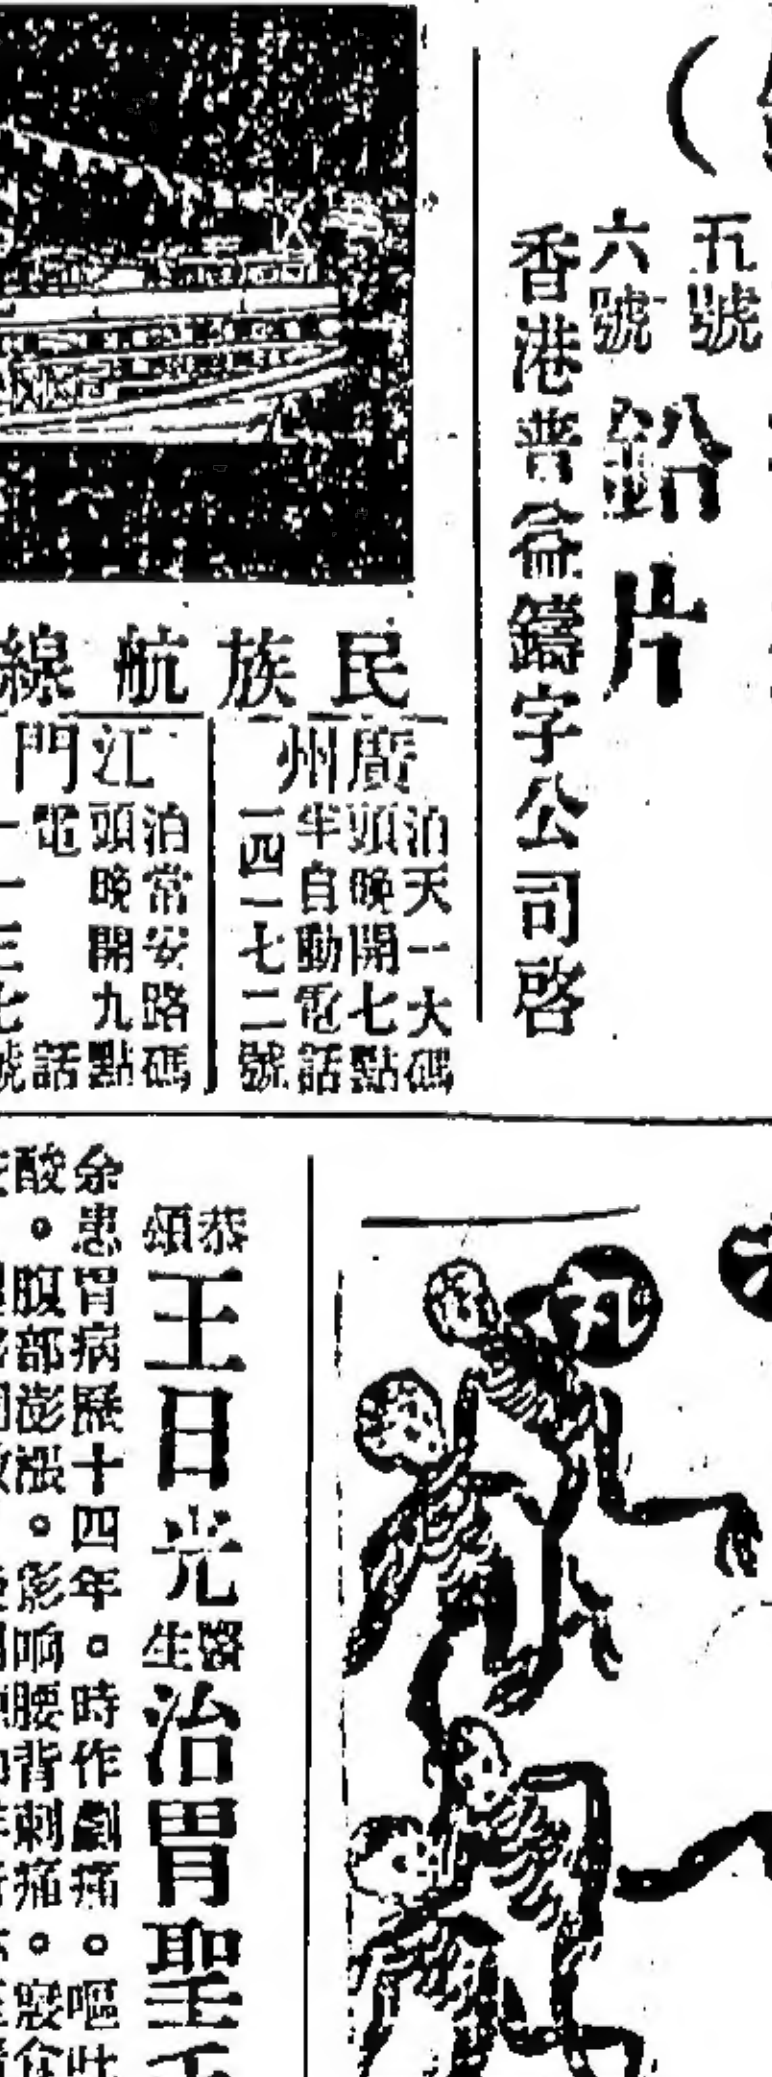 五號
六號
鉛片
香港普益鑄字公司啓
民族航線
廣州
泊天一大碼
頭晚開七點
半自動電話
一四一七二號
江門
泊常安路碼
頭晚開九點
電話
一一三七號
丸
恭頌
王日光
醫生
治胃聖手
余患胃病歷十四年。時作劇痛。嘔吐
酸。腹部澎漲。影响腰背刺痛。寢食